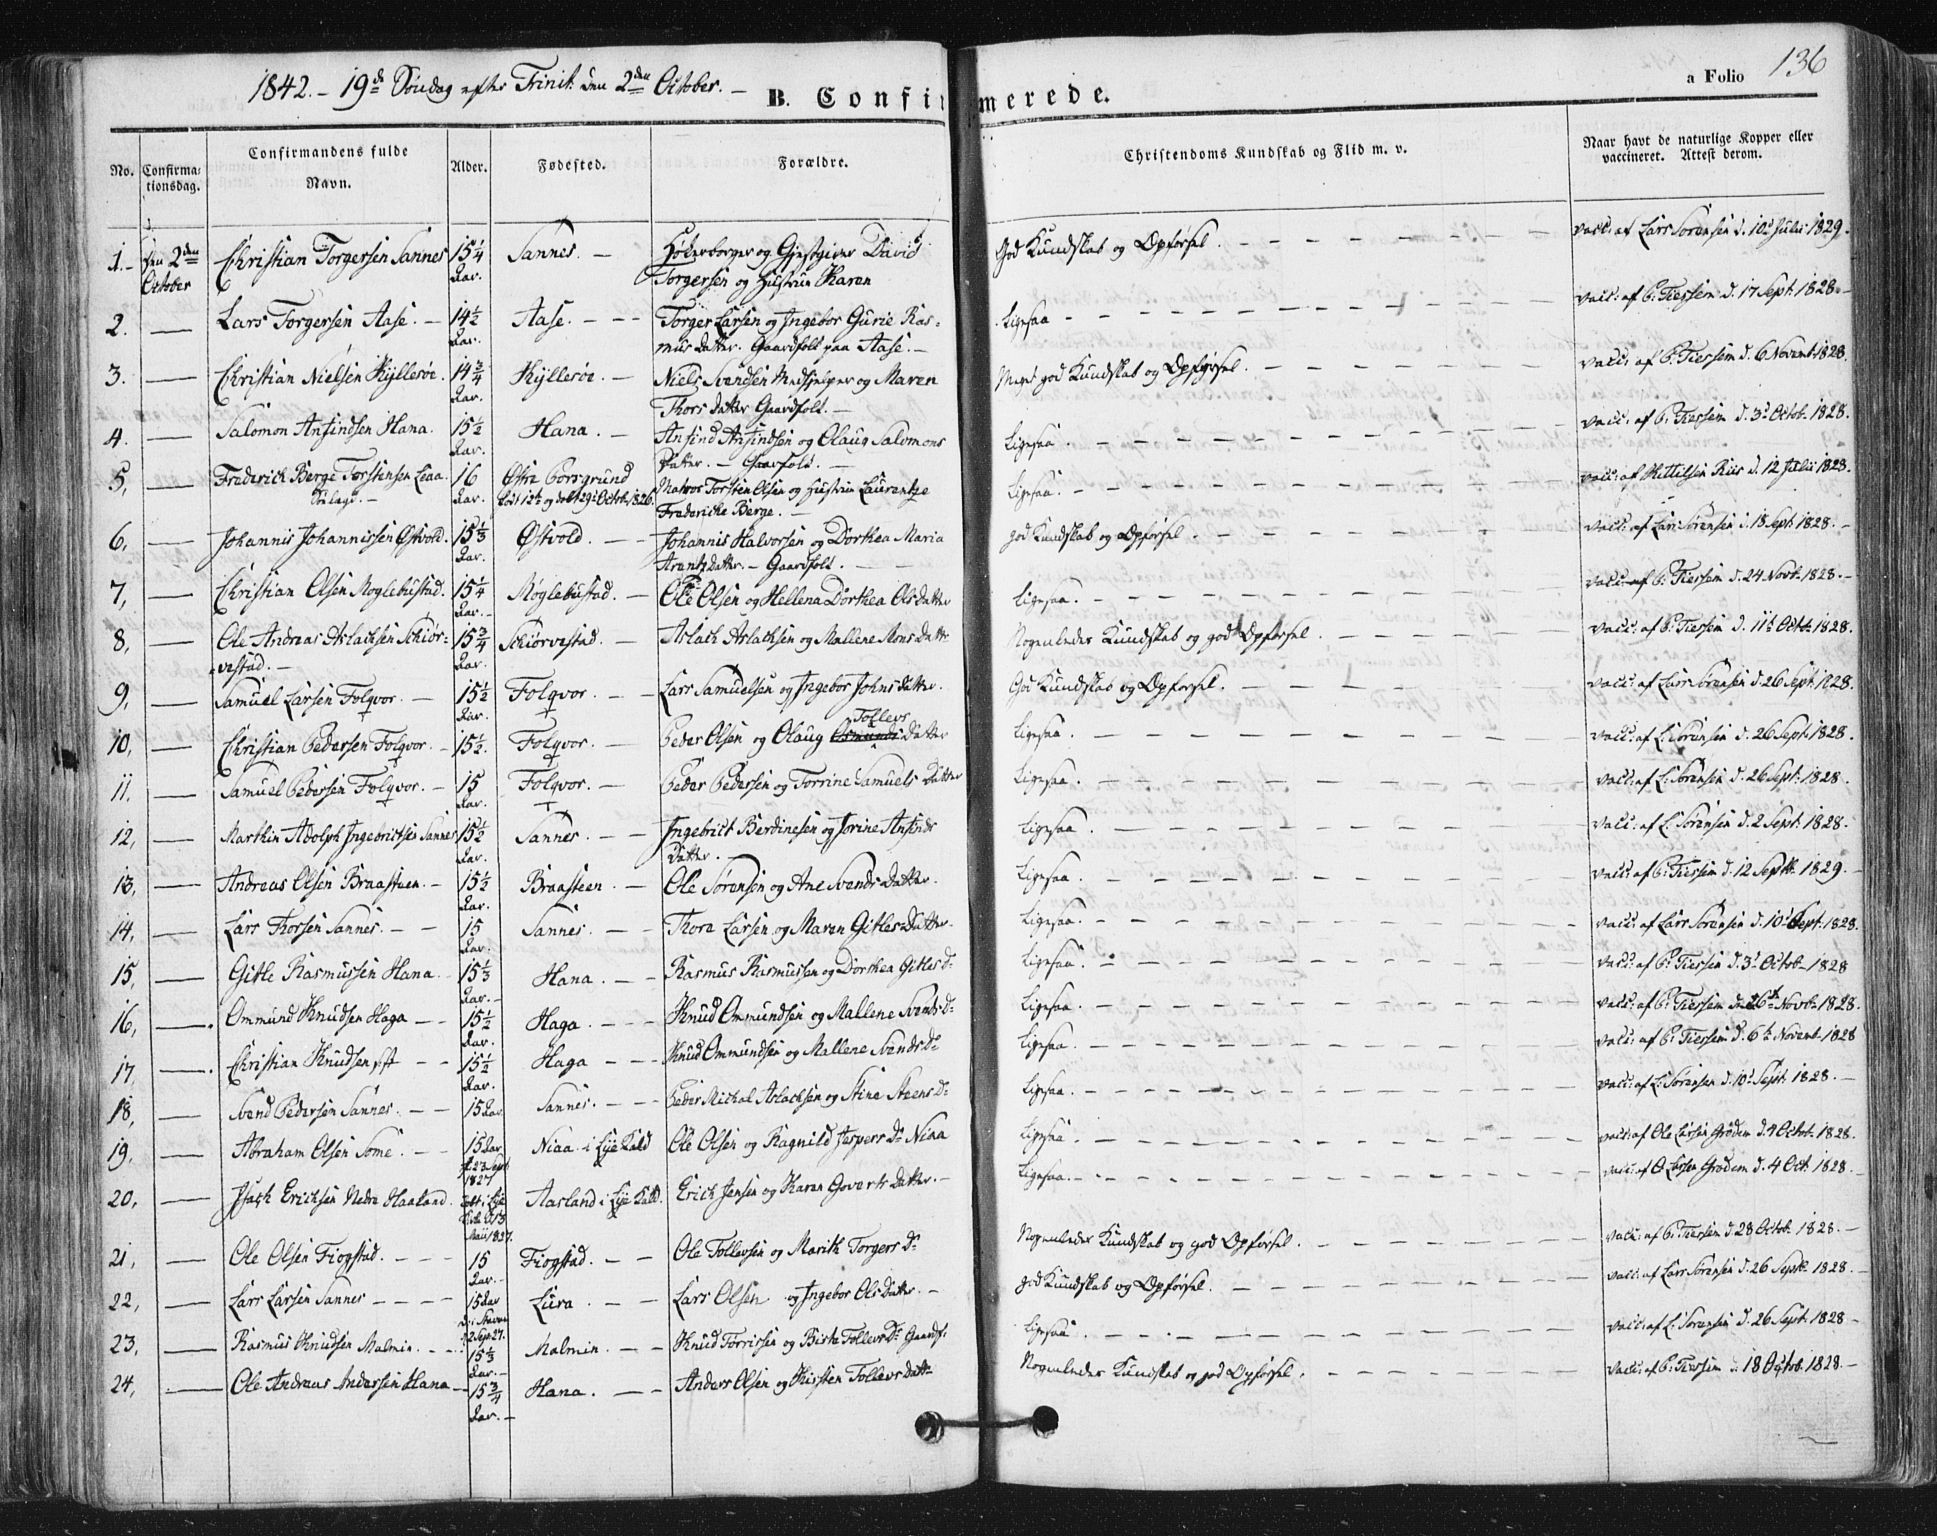 1842. - 19de Søndag efter Trinit. den 2den October. -
B. Confirmerede.
a Folio 136
No. Confirmationsdag. Confirmandens fulde Navn. Alder. Fødested. Forældre. Christendoms Kundskab og Flid m. v. Naar havt de naturlige Kopper eller vaccineret. Attest derom.
1. - den 2den October Christian Torgersen Sannes 15 1/4 Aar. Sannes. - Høkerborger og Gjestgiver David Torgersen og Hustrue Karen God Kundskab og Opførsel. vacc: af Lars Sørensen d. 10d Julii 1829.
2. — Lars Torgersen Aase. - 14 1/2 Aar. Aase. - Torger Larsen og Ingebor Gurie Rasmus Datter. Gaardfolk paa Aase. - Ligesaa vacc: af P. Tiersen d. 17 Sept. 1828. -
3. — Christian Nielsen Kyllesøe. 14 3/4 Aar. Kyllesøe. - Niels Svendsen Medhjelper og Maren Thors Datter Gaardfolk. - Meget god Kundskab og Opførsel. vacc: af P. Tiersen d. 6 Novemb. 1828.
4. — Salomon Anfindsen Hana. 15 1/2 Aar. Hana. - Anfind Anfindsen og Olaug Salomons Datter. - Gaardfolk. - Ligesaa. vacc: af P. Tiersen d. 3d Octob. 1828.
5, — Frederich Berge Torstensen Leaa. 16 Aar. Østre Porsgrund født 12te og døbt 29 Octob, 1826. Matros Torsten Olsen og Hustrue Laurentze Fredericke Berge. - Ligesaa. vacc: af Kittilsen Riis d. 12 Julii 1828.
6, — Johannis Johannissen Østvold. 15 1/3 Aar. Østvold. - Johannis Halvorsen og Dorthea Maria Arentz Datter. - Gaardfolk. god Kundskab og Opførsel. vacc: af Lars Sørensen d. 18 Sept. 1828. -
7, — Christian Olsen Moglebustad. 15 1/4 Aar. - Moglebustad. - Ole Olsen og Hellena Dorthea Ols Datter Ligesaa. vacc: af P. Tiersen d. 24 Novb. 1828. -
8, — Ole Andreas Aslachsen Schiørvestad. - 15 3/4 Aar. Schiørvestad. - Aslach Aslachsen og Mallene Mons Datter Nogenledes Kundskab og god Opførsel. vacc: af P. Tiersen d. 11te Octb. 1828.
9, — Samuel Larsen Folqvor. - 15 1/2 Aar. Folqvor. - Lars Samuelsen og Ingebor Johns Datter. God Kundskab og Opførsel. vacc: af Lars Sørensen d. 26 Sept. 1828.
10, — Christian Pedersen Folqvor. - 15 1/2. Folqvor. - Peder Olsen og Olaug Tollevs Datter Ligesaa. vacc: af L. Sørensen d. 26 Sept. 1828.
11, — Samuel Pedersen Folqvor. - 15 Aar. Folqvor. - Peder Pedersen og Torrine Samuels Datter Ligesaa. vacc: af L. Sørensen d. 26 Sept. 1828.
12, — Marthin Adolph Ingebrictsen Sannes 15 1/2 Aar. Sannes. - Ingebrict Berdinesen og Jorine Anfinds Datter. Ligesaa. vacc: af L. Sørensen d. 2 Sept. 1828.
13, — Andreas Olsen Braasteen. - 15 1/2 Aar. Braasteen. - Ole Sørensen og Ane Svends Datter. Ligesaa. vacc: af P. Tiersen d. 12 Septb. 1829. -
14, — Lars Thorsen Sannes. - 15 Aar. Sannes. - Thore Larsen og Maren Gitles Datter. Ligesaa. vacc: af Lars Sørensen d. 10d Sept. 1828.
15, — Gitle Rasmussen Hana. 15 1/3 Aar. - Hana. - Rasmus Rasmussen og Dorthea Gitles D. Ligesaa. vacc: af P. Tiersen d. 3d Octob. 1828
16, — Ommund Knudsen Haga - 15 1/2 Aar. Haga. - Knud Ommundsen og Mallene Svends D. Ligesaa. vacc: af P. Tiersen den 26de Novb. 1828.
17, — Christian Knudsen - 15 1/2 Aar. Haga - Knud Ommundsen og Mallene Svends D. Ligesaa. vacc: af P. Tiersen d. 6te Novemb. 1828
18, — Svend Pedersen Sannes. - 15 Aar Sannes. - Peder Michal Aslachsen og Stine Steens D. Ligesaa. vacc: af L. Sørensen d. 10d Sept. 1828. -
19, — Abraham Olsen Some. - 15 Aar 23 Sept 1827 Niaa i Lye Kald Ole Olsen og Ragnild Jespers D. Niaa Ligesaa. vacc: af Ole Larsen Grødem d. 4 Octob. 1828.
20, — Isach Erichsen Nedre Haaland. Maii 1827. Aasland i Lye Kald. Erich Jensen og Karen Goverts Datter. - Ligesaa. vacc: af O Larsen Grødem d. 4 Oct. 1828. -
21, — Ole Olsen Fiogstad. - 15 Aar. - Fiogstad. - Ole Tollevsen og Marith Torgers D. Nogenledes Kundskab og god Opførsel. vacc: af P. Tiersen d. 28 Octob. 1828. -
22, — Lars Larsen Sannes - 15 Aar 2 Sept 27. Lura. - Lars Olsen og Ingebor Ols Datter. - god Kundskab og Opførsel. vacc: af Lars Sørensen d. 26 Septb. 1828. -
23, — Rasmus Knudsen Malmin. - 15 1/3 Aar. - Malmin. - Knud Torrissen og Birthe Tollevs D. Gaardf. Ligesaa. vacc: af L. Sørensen d. 26 Sept. 1828 -
24, — Ole Andreas Andersen Hana - 15 3/4 Aar. - Hana. - Anders Olsen og Kirsten Tollevs Datter Nogenledes Kundskab og god Opførsel. vacc: af P. Tiersen d. 18 Octob. 1828. -